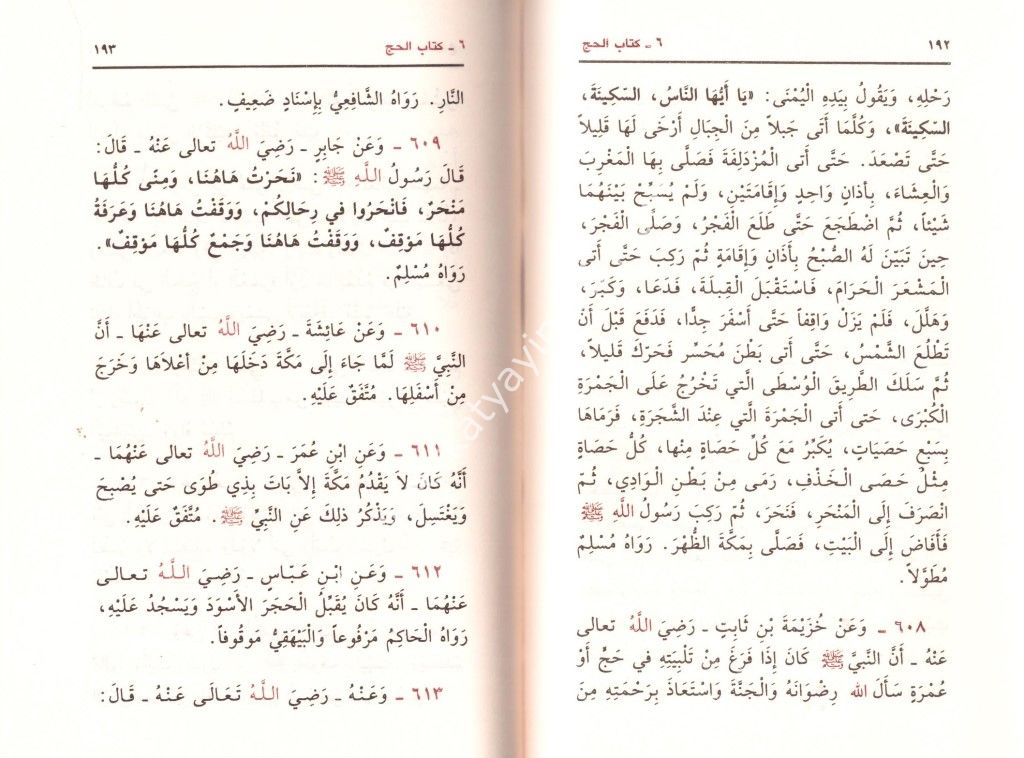 ١٩٢
٦ ـ كتاب الحج
رَحْلِهِ، وَيَقُولُ بِيَدِهِ الْيُمْنَى: «يَا أَيُّهَا النَّاسُ، السَّكِينَةَ،
السَّكِينَةَ»، وَكُلَّمَا أَتَى جَبلاً مِنَ الْجِبَالِ أَرْخَى لَهَا قَلِيلاً
حَتَّى تَصْعَدَ. حَتَّى أَتى الْمُزْدَلِفَةَ فَصَلَّى بِهَا الْمَغْرِبَ
وَالْعِشَاءَ، بِأَذانٍ وَاحِدٍ وَإِقَامَتَيْنِ، وَلَمْ يُسَبِّحْ بَيْنَهُمَا
شَيْئاً، ثُمَّ اضْطَجَعَ حَتَّى طَلَعَ الْفَجْرُ، وَصَلَّى الْفَجْرَ،
حِينَ تَبَيَّنَ لَهُ الصُّبْحُ بِأَذَانٍ وَإِقَامَةٍ ثُمَّ رَكِبَ حَتَّى أَتى
الْمَشْعَرَ الْحَرَامَ، فَاسْتَقْبَلَ الْقِبلَةَ، فَدَعَا، وَكَبَّرَ،
وَهَلَّلَ، فَلَمْ يَزَلْ وَاقِفاً حَتَّى أَسْفَرَ جِدًّا، فَدَفَعَ قَبْلَ أَنْ
تَطْلُعَ الشَّمْسُ، حَتَّى أَتى بَطْنَ مُحَسِّرٍ فَحَرَّكَ قَلِيلاً،
ثُمَّ سَلَكَ الطَّرِيقَ الْوُسْطَى الَّتي تَخْرُجُ عَلَى الْجَمْرَةِ
الْكُبْرَى، حَتى أَتَى الْجَمْرَةَ الَّتي عِنْدَ الشَّجَرَةِ، فَرَمَاهَا
بِسَبْعِ حَصَيَاتٍ، يُكَبِّرُ مَعَ كُلِّ حَصَاةٍ مِنْها، كُلُّ حَصَاةٍ
مِثْلُ حَصَى الْخَذْفِ، رَمَى مِنْ بَطْنِ الْوَادِي، ثُمَّ
انْصَرَفَ إِلَى الْمَنْحَرِ، فَنَحَرَ، ثُمَّ رَكِبَ رَسُولُ اللَّهِ ﷺ
فَأَفَاضَ إِلَى الْبَيْتِ، فَصَلَّى بِمَكَّةَ الظُّهْرَ. رَوَاهُ مُسْلِمٌ
مُطَوَّلاً.
٦٠٨ ـ وَعَنْ خُزَيْمَةَ بْنِ ثَابِتٍ ـ رَضِيَ اللَّهُ تعالى
عَنْهُ ـ أَنَّ النَّبِيَّ ﷺ كَانَ إِذَا فَرَغَ مِنْ تَلْبِيَتِهِ في حَجٍّ أَوْ
عُمْرَةٍ سَأَلَ الله رِضْوَانَهُ وَالْجَنَّةَ وَاسْتَعَاذَ بِرَحْمَتِهِ مِنَ
٦ ـ كتاب الحج
١٩٣
النَّارِ. رَوَاهُ الشَّافِعِيُّ بِإِسْنَادٍ ضَعِيفٍ.
٦٠٩ ـ وَعَنْ جَابِرٍ ـ رَضِيَ اللَّهُ تعالى عَنْهُ ـ قَالَ:
قَالَ رَسُولُ اللَّهِ ﷺ: «نَحَرْتُ هَاهُنَا، وَمِنًى كُلُّهَا
مَنْحَرٌ، فَانْحَرُوا في رِحَالِكُمْ، وَوَقَفْتُ هَاهُنَا وَعَرَفَةُ
كُلُّهَا مَوْقِفٌ، وَوَقَفْتُ هَاهُنَا وَجَمْعٌ كُلُّهَا مَوْقِفٌ».
رَوَاهُ مُسْلِمٌ.
٦١٠ ـ وَعَنْ عَائِشَةَ ـ رَضِيَ اللَّهُ تعالى عَنْهَا ـ أَنَّ
النَّبِيَّ ﷺ لَمَّا جَاءَ إِلَى مَكَّةَ دَخَلَهَا مِنْ أعْلاَهَا وَخَرَجَ
مِنْ أَسْفَلِهَا. مُتَّفَقٌ عَلَيْهِ.
٦١١ ـ وَعَنِ ابْنِ عُمَرَ ـ رَضِيَ اللَّهُ تعالى عَنْهُمَا ـ
أَنَّهُ كَانَ لاَ يَقْدُمُ مَكَّةَ إِلاَّ بَاتَ بِذِي طُوَى حَتى يُصْبِحَ
وَيَغْتَسِلَ، وَيَذْكُرُ ذلِكَ عَنِ النَّبِيِّ ﷺ. مُتَّفَقٌ عَلَيْهِ.
٦١٢ ـ وَعَنِ ابْنِ عَبَّاسٍ ـ رَضِيَ اللَّهُ تعالى
عَنْهُمَا ـ أَنَّهُ كَانَ يُقَبِّلُ الْحَجَرَ الأَسْوَدَ وَيَسْجُدُ عَلَيْهِ،
رَوَاهُ الْحَاكِمُ مَرْفُوعاً وَالْبَيْهَقِيُّ مَوقُوفاً.
٦١٣ ـ وَعَنْهُ ـ رَضِيَ اللَّهُ تَعَالَى عَنْهُ ـ قَالَ: